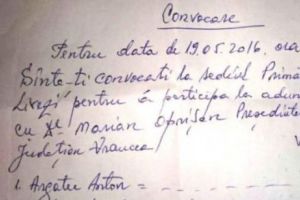 Convocare
Pentru data de 19.05.2016, ora
Sînteti convocati la sediul Primă
Livezi pentru a participa la adun
cu Dl Marian Oprișan Președinte
Județian Vrancea
1. Argatu Anton = - - - - - -